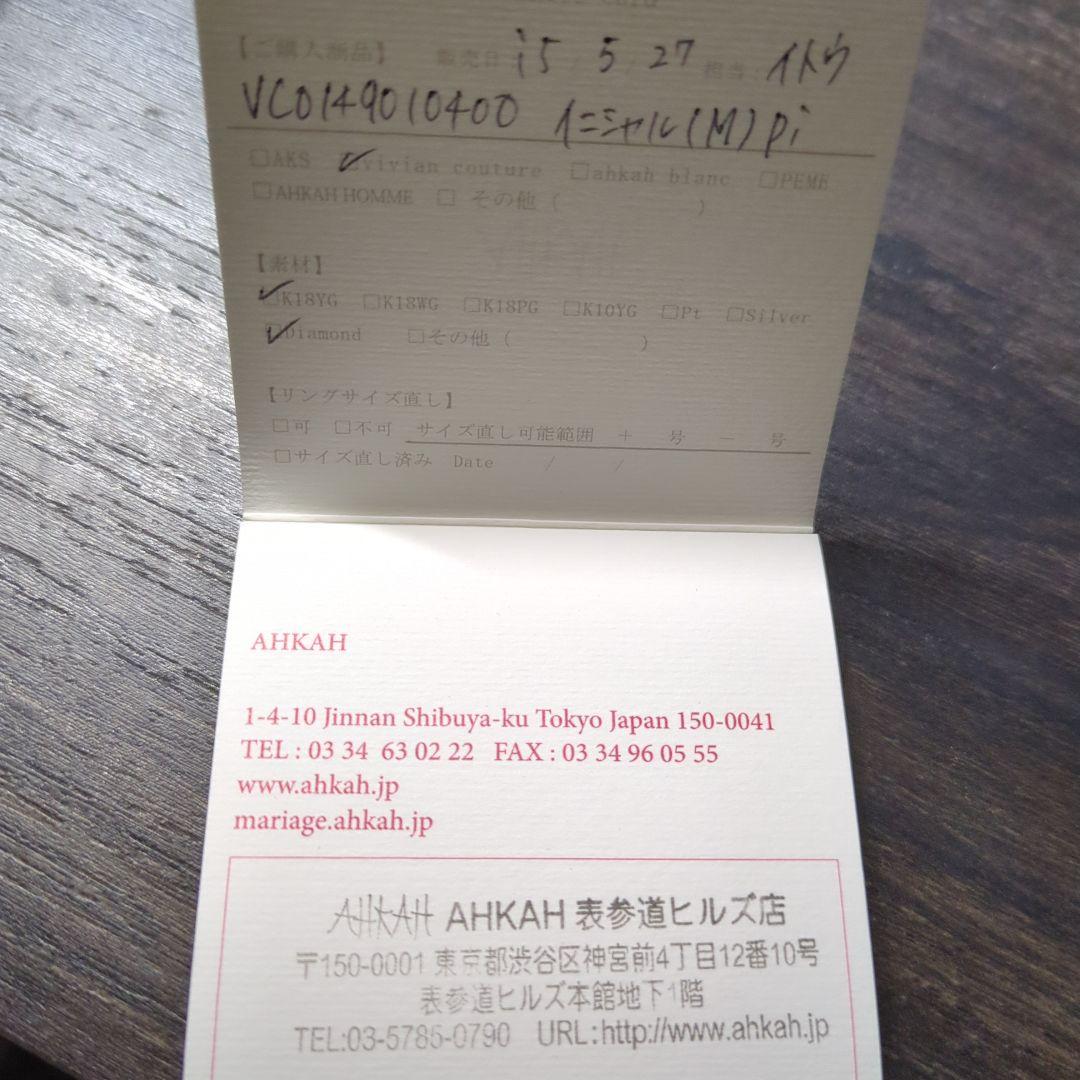 【ご購入商品】 販売日 15 / 5 / 27 担当: イトウ
VC0149010400 イニシャル(M)pi
□AKS ☑vivian couture □ahkah blanc □PEME
□AHKAH HOMME □ その他 ( )
【素材】
☑K18YG □K18WG □K18PG □K10YG □Pt □Silver
☑Diamond □その他 ( )
【リングサイズ直し】
□可 □不可 サイズ直し可能範囲 + 号 − 号
□サイズ直し済み Date / /
AHKAH
1-4-10 Jinnan Shibuya-ku Tokyo Japan 150-0041
TEL : 03 34 63 02 22 FAX : 03 34 96 05 55
www.ahkah.jp
mariage.ahkah.jp
AHKAH AHKAH 表参道ヒルズ店
〒150-0001 東京都渋谷区神宮前4丁目12番10号
表参道ヒルズ本館地下1階
TEL:03-5785-0790 URL:http://www.ahkah.jp